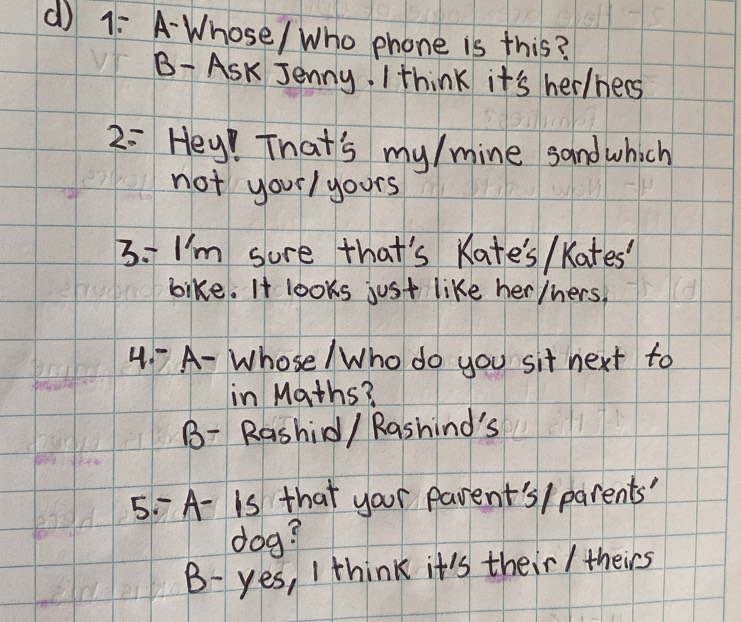 d) 1.- A-Whose/Who phone is this?
B- Ask Jenny. I think it's her/hers
2.- Hey! That's my/mine sandwhich
not your/yours
3.- I'm sure that's Kate's/Kates'
bike. It looks just like her/hers.
4.- A- Whose/Who do you sit next to
in Maths?
B- Rashid/Rashind's
5.- A- Is that your parent's/parents'
dog?
B- yes, I think it's their/theirs